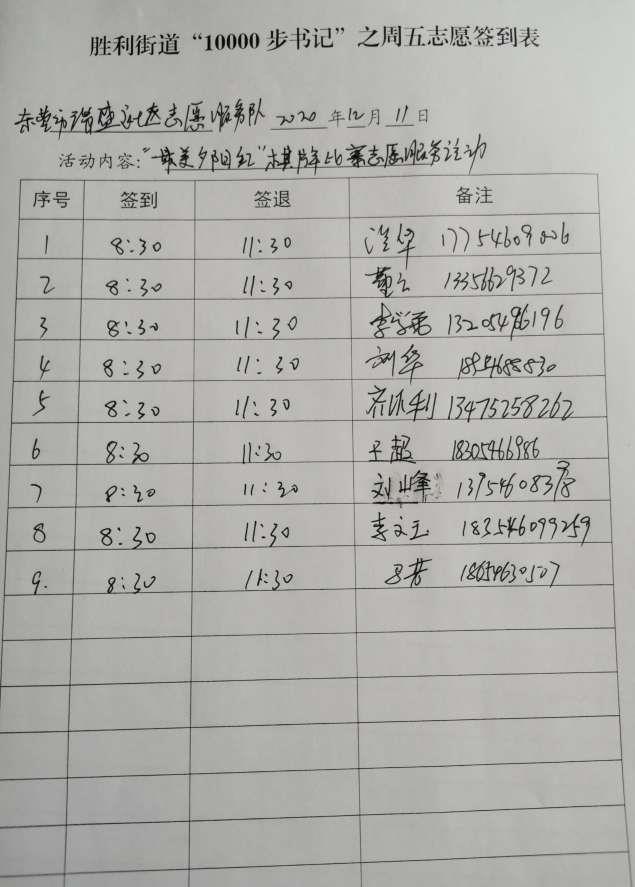 胜利街道“10000步书记”之周五志愿签到表
东营市瑞盛社区志愿服务队 2020 年 12 月 11 日
活动内容:“最美夕阳红”棋牌比赛志愿服务活动
序号 签到 签退 备注
1 8:30 11:30 17754609006
2 8:30 11:30 13356629372
3 8:30 11:30 13205496196
4 8:30 11:30 刘华
5 8:30 11:30 13475258262
6 8:30 11:30 于超 18305466986
7 8:30 11:30 刘峰
8 8:30 11:30 李文玉
9. 8:30 11:30 18654630507